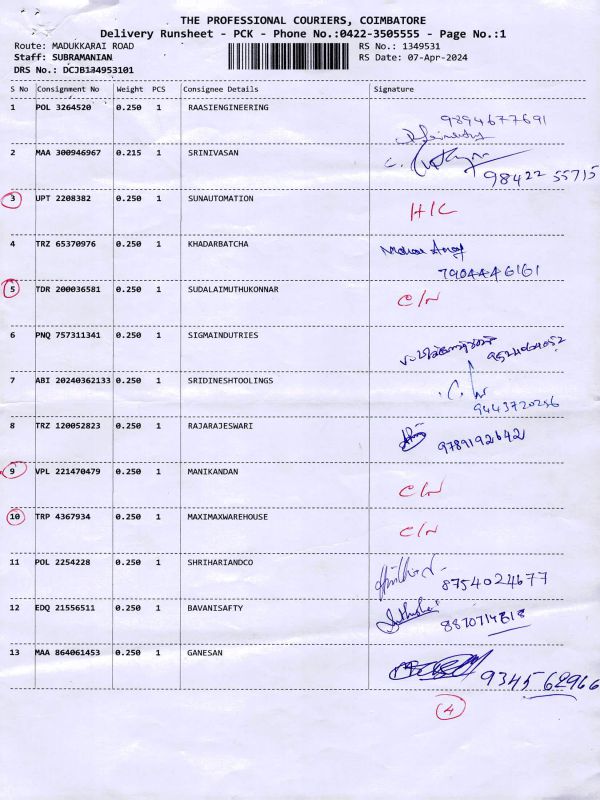 THE PROFESSIONAL COURIERS, COIMBATORE
Delivery Runsheet - PCK - Phone No.:0422-3505555 - Page No.:1
Route: MADUKKARAI ROAD RS No.: 1349531
Staff: SUBRAMANIAN RS Date: 07-Apr-2024
DRS No.: DCJB134953101
S No Consignment No Weight PCS Consignee Details Signature
1 POL 3264520 0.250 1 RAASIENGINEERING 9894677691
2 MAA 300946967 0.215 1 SRINIVASAN 98422 55715
3 UPT 2208382 0.250 1 SUNAUTOMATION H/C
4 TRZ 65370976 0.250 1 KHADARBATCHA 7904446161
5 TDR 200036581 0.250 1 SUDALAIMUTHUKONNAR C/N
6 PNQ 757311341 0.250 1 SIGMAINDUTRIES
7 ABI 20240362133 0.250 1 SRIDINESHTOOLINGS 9443720256
8 TRZ 120052823 0.250 1 RAJARAJESWARI 9789192642
9 VPL 221470479 0.250 1 MANIKANDAN C/N
10 TRP 4367934 0.250 1 MAXIMAXWAREHOUSE C/N
11 POL 2254228 0.250 1 SHRIHARIANDCO 8754024677
12 EDQ 21556511 0.250 1 BAVANISAFTY 8870714818
13 MAA 864061453 0.250 1 GANESAN 9345 62966
4